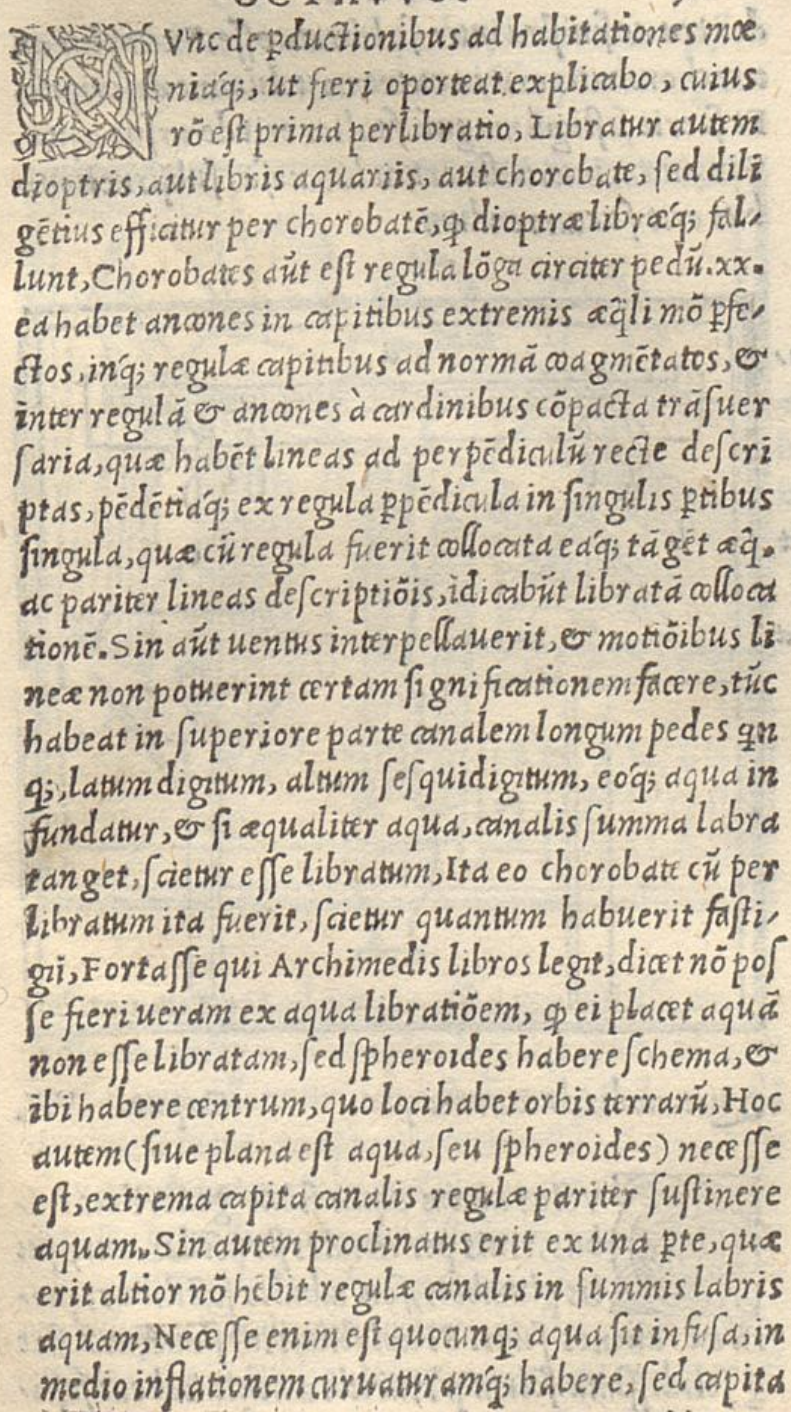 NVnc de ꝑductionibus ad habitationes mœ
niaq́;, ut fieri oporteat explicabo, cuius
rõ est prima perlibratio, Libratur autem
dioptris, aut libris aquariis, aut chorobate, sed dilĩ
gẽtius efficitur per chorobatẽ, ꝙ dioptræ libræq́; fal-
lunt, Chorobates aũt est regula lõga circiter pedũ.xx.
ea habet ancones in capitibus extremis æq̃li mõ ꝑfe-
ctos, inq́; regulæ capitibus ad normã coagmẽtatos, &
ĩnter regulã & ancones à cardinibus cõpacta trãsuer
saria, quæ habẽt lineas ad perpẽdiculũ recte descri
ptas, pẽdẽtiaq́; ex regula ꝑpẽdicula in singulis ꝑtibus
singula, quæ cũ regula fuerit collocata eaq́; tãgẽt æq̃.
ac pariter lineas descriptiõis, ĩdicabũt libratã colloca
tionẽ. Sin aũt uentus interpellauerit, & motiõibus li
neæ non potuerint certam significationem facere, tũc
habeat in superiore parte canalem longum pedes qñn
q;, latum digitum, altum sesquidigitum, eoq́; aqua in
fundatur, & si æqualiter aqua, canalis summa labra
tanget, scietur esse libratum, Ita eo chorobate cũ per
libratum ita fuerit, scietur quantum habuerit fasti-
gii, Fortasse qui Archimedis libros legit, dicet nõ pos
se fieri ueram ex aqua libratiõem, ꝙ ei placet aquã
non esse libratam, sed spheroides habere schema, &
ibi habere centrum, quo loci habet orbis terrarũ, Hoc
autem (siue plana est aqua, seu spheroides) necesse
est, extrema capita canalis regulæ pariter sustinere
aquam, Sin autem proclinatus erit ex una ꝑte, quæ
erit altior nõ hẽbit regulæ canalis in summis labris
aquam, Necesse enim est quocunq; aqua sit infusa, in
medio inflationem curuaturamq́; habere, sed capita